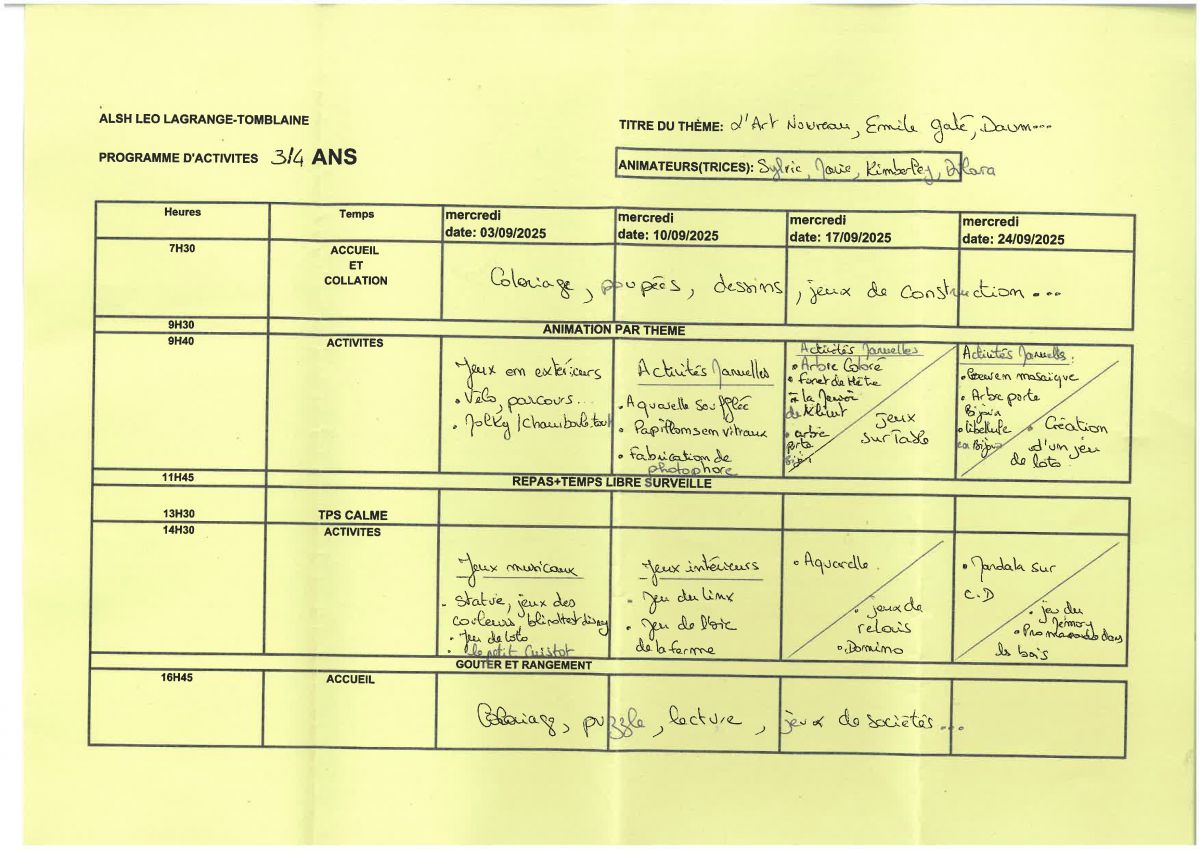 ALSH LEO LAGRANGE-TOMBLAINE
TITRE DU THÈME: d'Art Nouveau, Emile Gallé, Daum...
PROGRAMME D'ACTIVITES 3/4 ANS
ANIMATEURS(TRICES): Sylvie, Kimberley, Dilara
Heures
Temps
mercredi
date: 03/09/2025
mercredi
date: 10/09/2025
mercredi
date: 17/09/2025
mercredi
date: 24/09/2025
7H30
ACCUEIL
ET
COLLATION
Coloriage, poupées, dessins, jeux de construction...
9H30
ANIMATION PAR THEME
9H40
ACTIVITES
Jeux en extérieurs
• Vélo, parcours...
• Molky / chamboule tout
Activités Manuelles
• Aquarelle soufflée
• Papillons en vitraux
• Fabrication de
photophore
Activités Manuelles
• Arbre Coloré
• Foret de Hêtre
à la
de Klimt
• arbre
porte
bijoux
Jeux
sur Table
Activités Manuelles:
• en mosaïque
• Arbre porte
Bijoux
• libellule
en Bijoux
• Création
d'un jeu
de loto
11H45
REPAS+TEMPS LIBRE SURVEILLE
13H30
TPS CALME
14H30
ACTIVITES
Jeux musicaux
- Statue, jeux des
couleurs, blind test disney
• Jeu de loto
• le petit Cuistot
Jeux intérieurs
- Jeu du linx
• Jeu de l'oie
de la ferme
• Aquarelle
• jeux de
relais
• Domino
• Mandala sur
C.D
• jeu du
Mémory
• Promenade dans
les bois
GOUTER ET RANGEMENT
16H45
ACCUEIL
Coloriage, puzzle, lecture, jeux de sociétés...